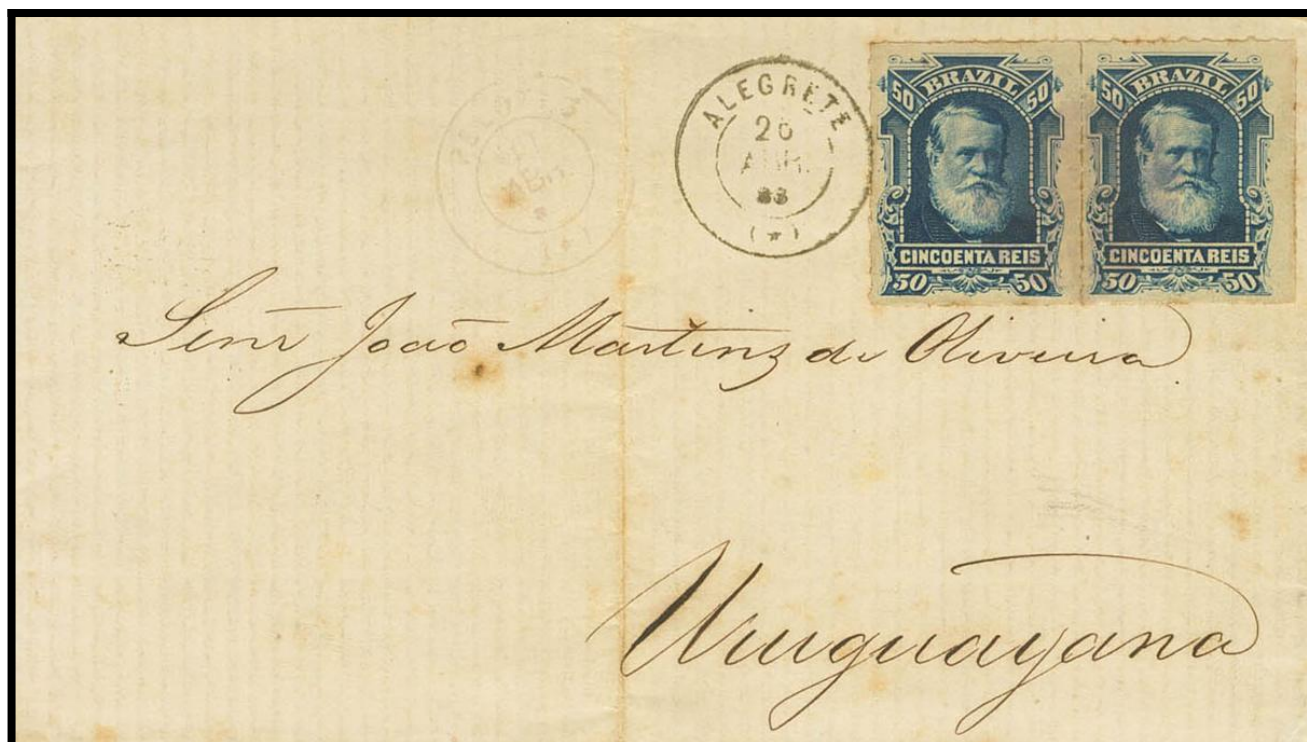 ALEGRETE
26
ABR.
83
(*)
50 BRAZIL 50
CINCOENTA REIS
50 50
50 BRAZIL 50
CINCOENTA REIS
50 50
Senr João Martins de Oliveira
Uruguayana